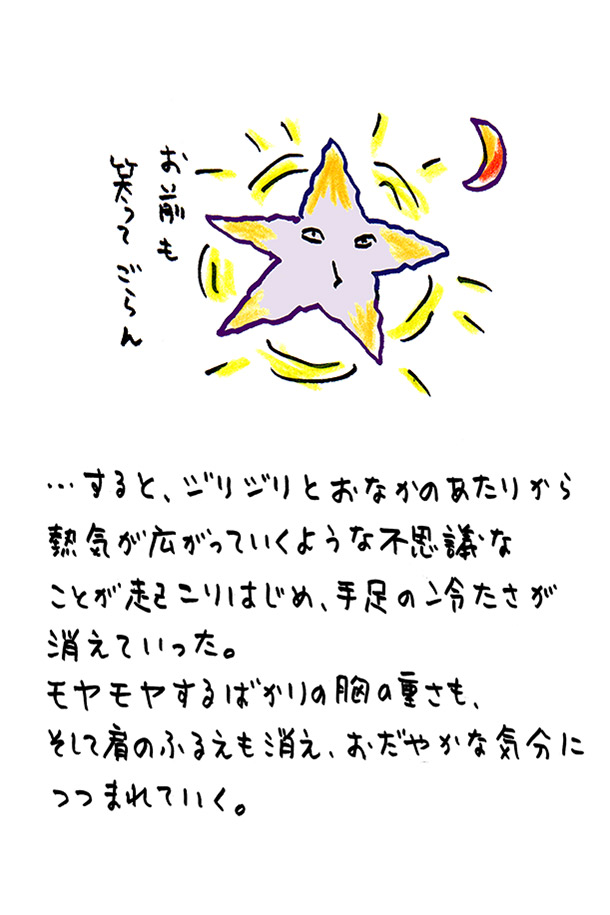 お前も
笑ってごらん
…すると、ジリジリとおなかのあたりから
熱気が広がっていくような不思議な
ことが起こりはじめ、手足の冷たさが
消えていった。
モヤモヤするばかりの胸の重さも、
そして肩のふるえも消え、おだやかな気分に
つつまれていく。